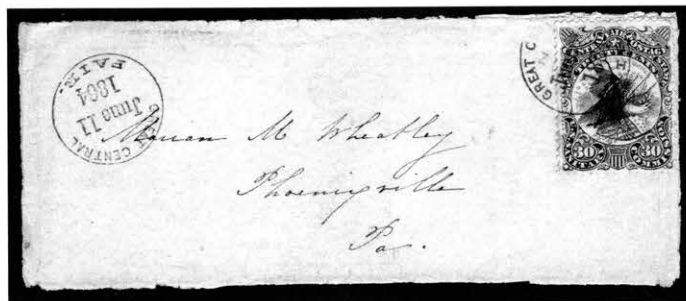 GREAT CENTRAL
FAIR.
June 11
1864
GREAT C
30
30
Marian M Wheatley
Phoenixville
Pa.